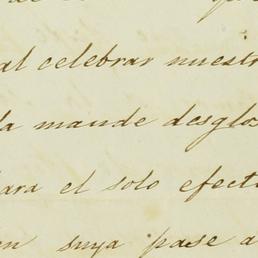 al celebrar nuestr
la mande desglos
para el solo efect
en suya pase a